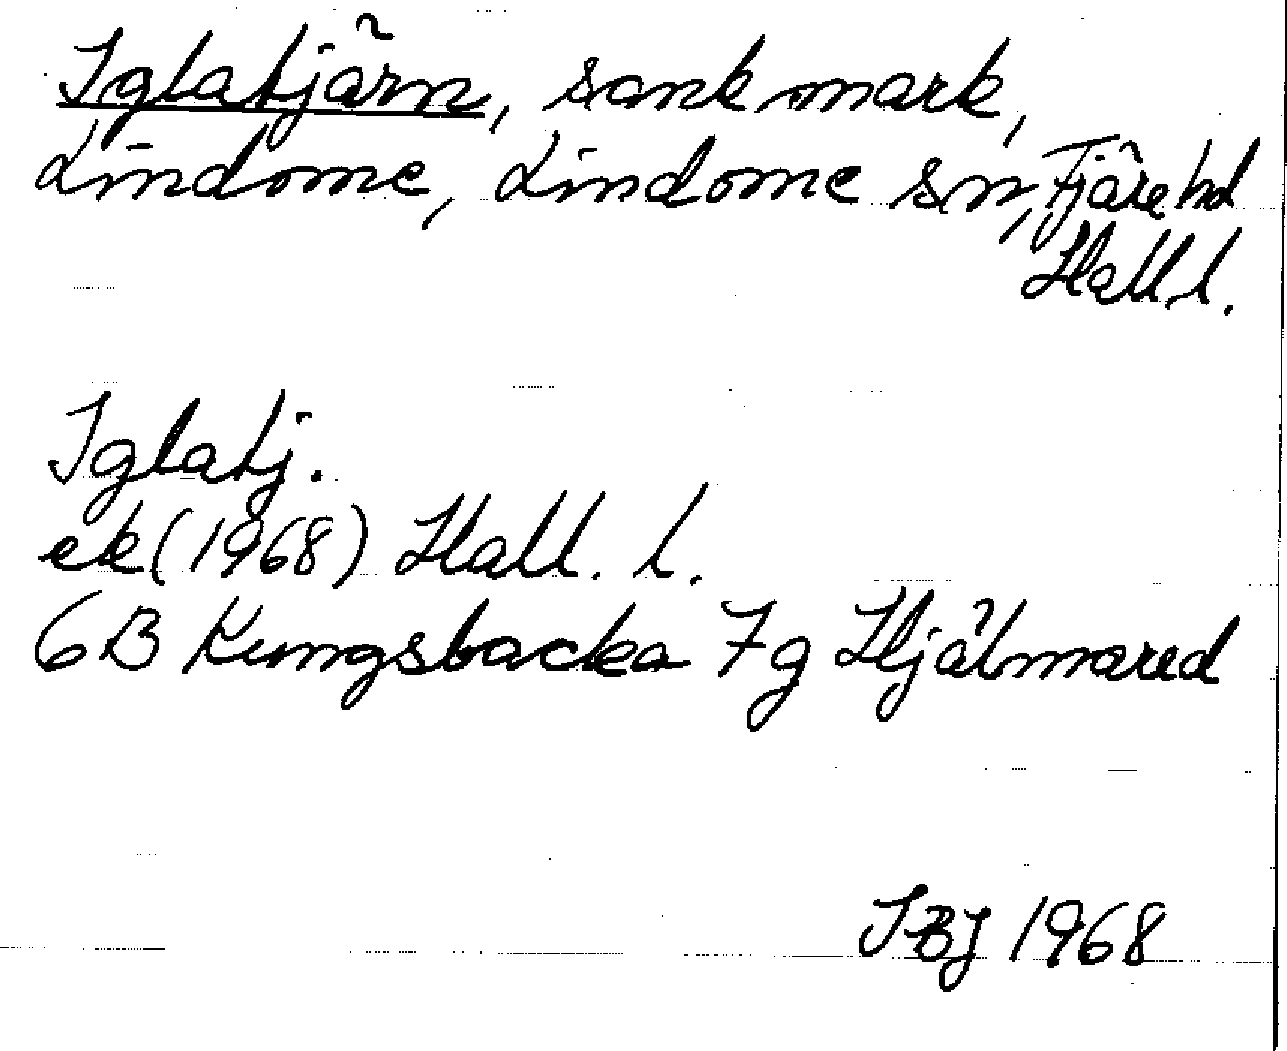 Iglatjärn, sank mark,
Lindome, Lindome sn, Fjäre hd
Hall l.
Iglatj.
ek (1968) Hall. l.
6B Kungsbacka 7g Hjälmared
IBJ 1968